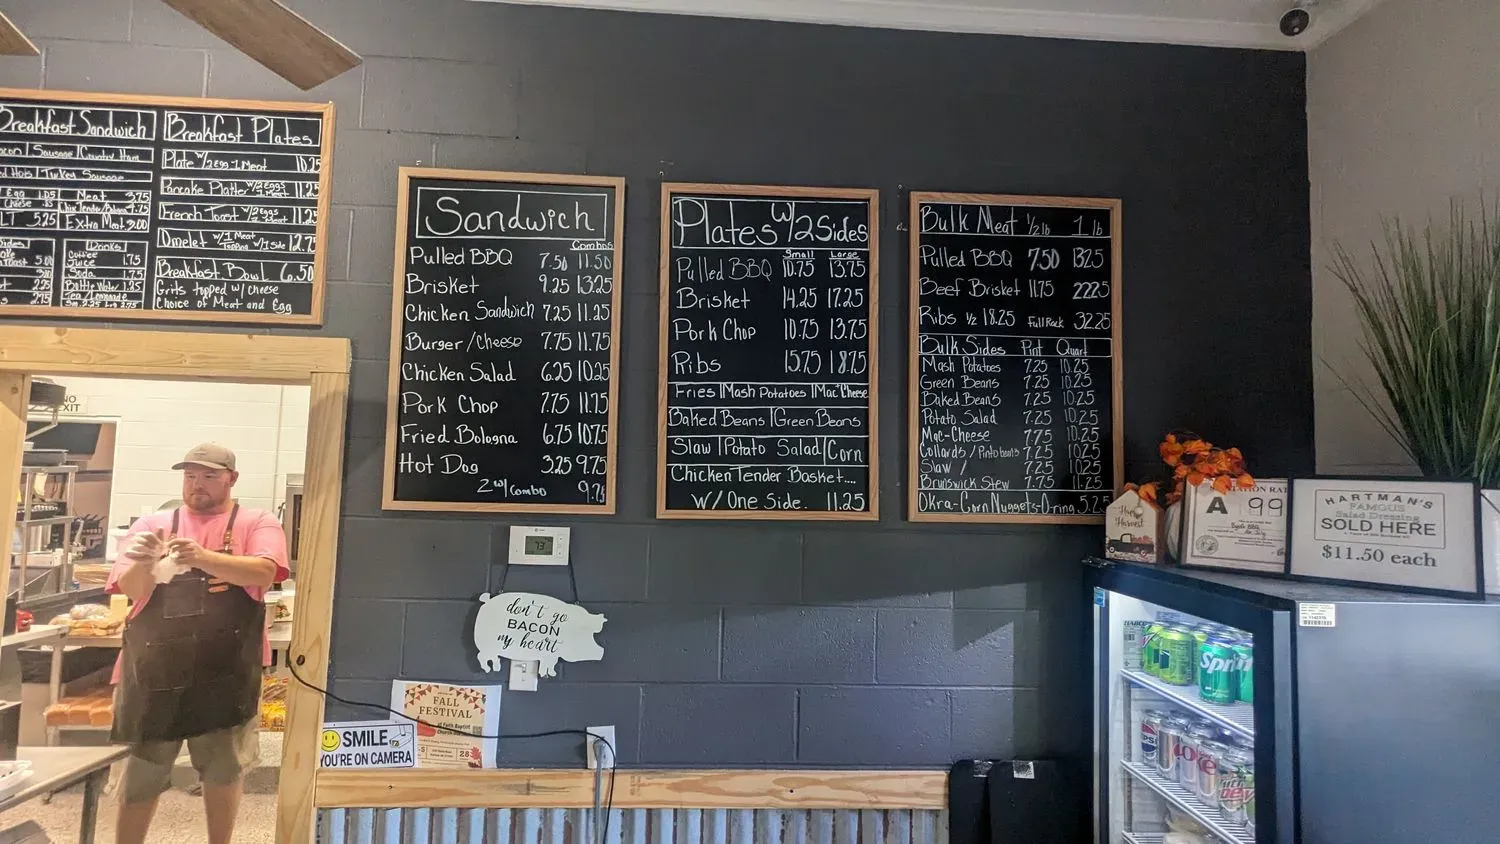 Breakfast Sandwich
Sausage | Country Ham
Turkey Sausage
Egg 1.05 Meat 3.75
Cheese
5.25 Extra Meat 3.00
Sides
Drinks
Coffee
Juice 1.75
Soda 1.75
Bottle Water 1.25
Tea / Lemonade
Breakfast Plates
Plate w/ 2 Egg 1 Meat 10.25
Pancake Platter w/ 2 Eggs 1 Meat 11.25
French Toast w/ 2 Eggs 1 Meat 11.25
Omelet w/ 1 Meat Topping w/ 1 Side 12.75
Breakfast Bowl 6.50
Grits topped w/ cheese
Choice of Meat and Egg
NO
EXIT
Sandwich
Combos
Pulled BBQ 7.50 11.50
Brisket 9.25 13.25
Chicken Sandwich 7.25 11.25
Burger/Cheese 7.75 11.75
Chicken Salad 6.25 10.25
Pork Chop 7.75 11.75
Fried Bologna 6.75 10.75
Hot Dog 3.25 9.75
2 w/ combo 9.75
Plates w/ 2 Sides
Small Large
Pulled BBQ 10.75 13.75
Brisket 14.25 17.25
Pork Chop 10.75 13.75
Ribs 15.75 18.75
Fries | Mash Potatoes | Mac+Cheese
Baked Beans | Green Beans
Slaw | Potato Salad | Corn
Chicken Tender Basket....
W/ One Side. 11.25
Bulk Meat 1/2 lb 1 lb
Pulled BBQ 7.50 13.25
Beef Brisket 11.75 22.25
Ribs 1/2 18.25 Full Rack 32.25
Bulk Sides Pint Quart
Mash Potatoes 7.25 10.25
Green Beans 7.25 10.25
Baked Beans 7.25 10.25
Potato Salad 7.25 10.25
Mac-Cheese 7.75 10.25
Collards / Pinto beans 7.25 10.25
Slaw / 7.25 10.25
Brunswick Stew 7.75 11.25
Okra-Corn Nuggets-O-ring 5.25
73
don't go
BACON
my heart
FALL
FESTIVAL
Faith Baptist
Church
28
SMILE
YOU'RE ON CAMERA
Harvest
A 99
HARTMAN'S
FAMOUS
Salad Dressing
SOLD HERE
$11.50 each
Sprite
pepsi